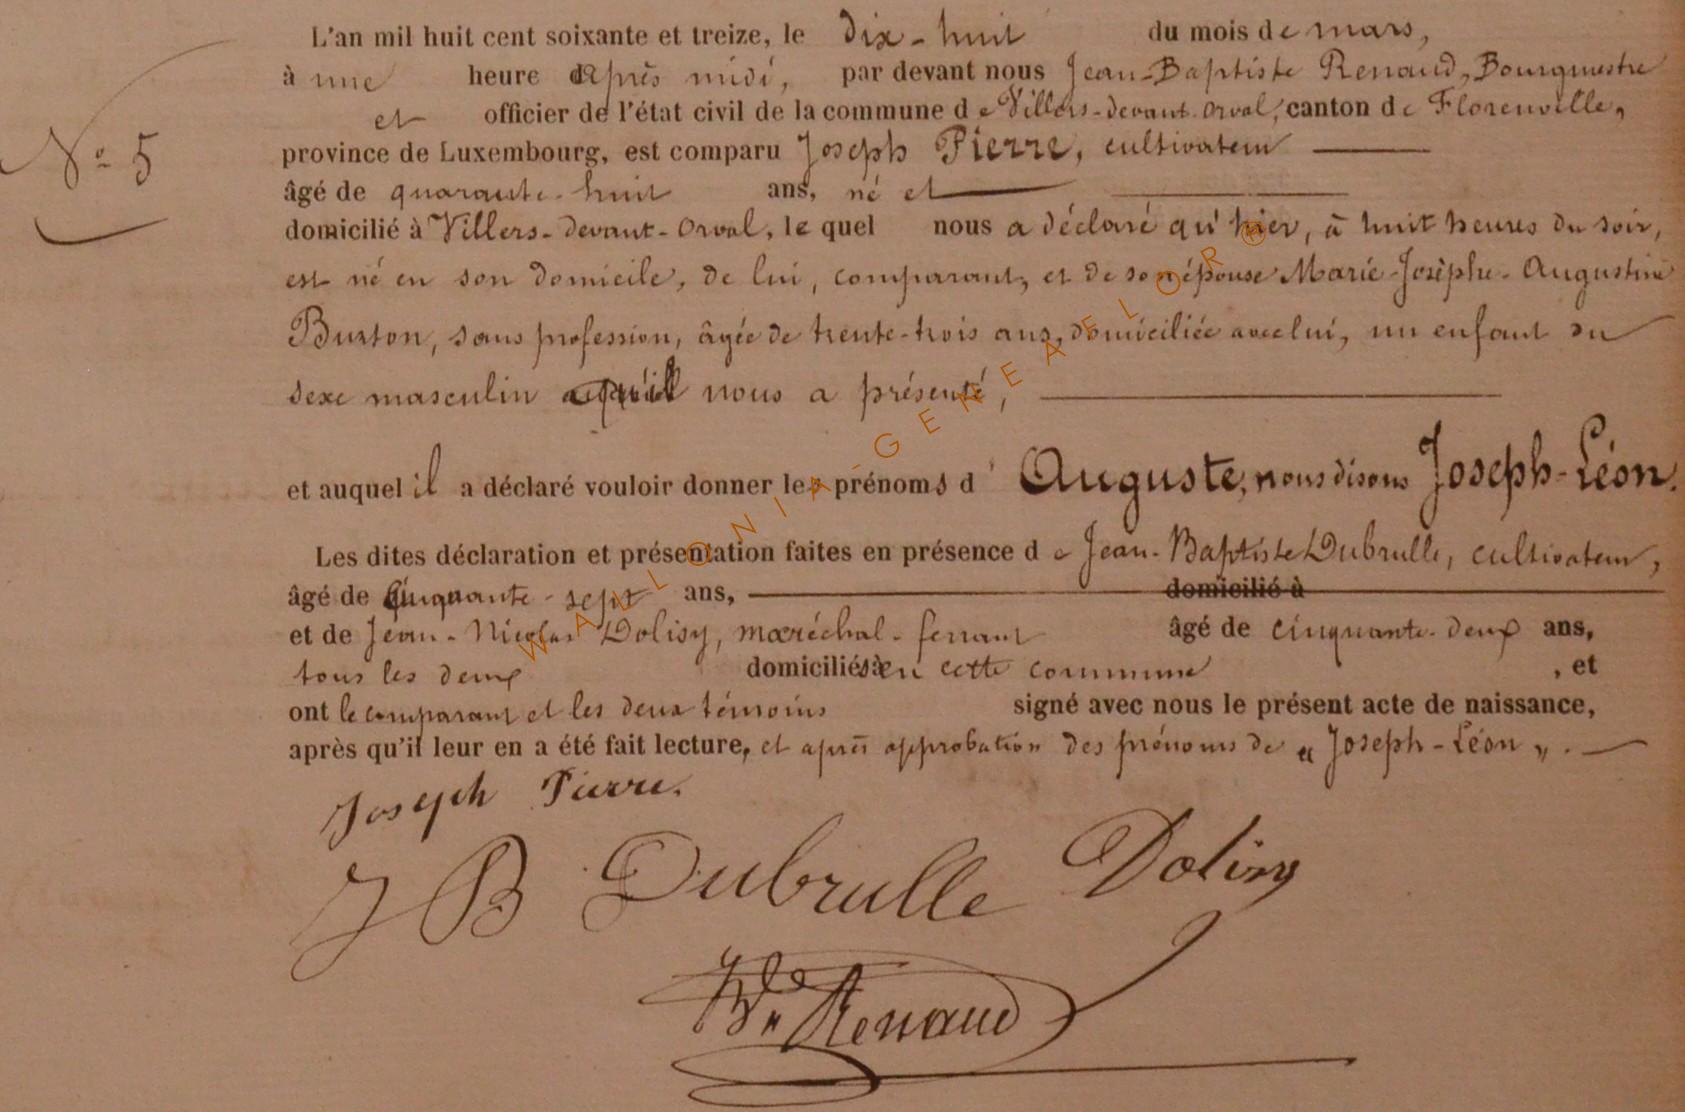 L'an mil huit cent soixante et treize, le dix-huit du mois de mars,
à une heure après midi, par devant nous Jean-Baptiste Renaud, Bourgmestre
et officier de l'état civil de la commune de Villers-devant-Orval, canton de Florenville,
N° 5
province de Luxembourg, est comparu Joseph Pierre, cultivateur
âgé de quarante-huit ans, né et
domicilié à Villers-devant-Orval, le quel nous a déclaré qu'hier, à huit heures du soir,
est né en son domicile, de lui, comparant, et de son épouse Marie-Josèphe-Augustine
Burton, sans profession, âgée de trente-trois ans, domiciliée avec lui, un enfant du
sexe masculin qu'il nous a présenté,
et auquel il a déclaré vouloir donner les prénoms d' Auguste, nous disons Joseph-Léon.
Les dites déclaration et présentation faites en présence de Jean-Baptiste Dubrulle, cultivateur,
âgé de cinquante-sept ans, domicilié à
et de Jean-Nicolas Dolisy, maréchal-ferrant âgé de cinquante-deux ans,
tous les deux domiciliés en cette commune , et
ont le comparant et les deux témoins signé avec nous le présent acte de naissance,
après qu'il leur en a été fait lecture, et après approbation des prénoms de « Joseph-Léon ».
Joseph Pierre.
J B Dubrulle Dolisy
Renaud
WALLONIA-GENEAELOR®